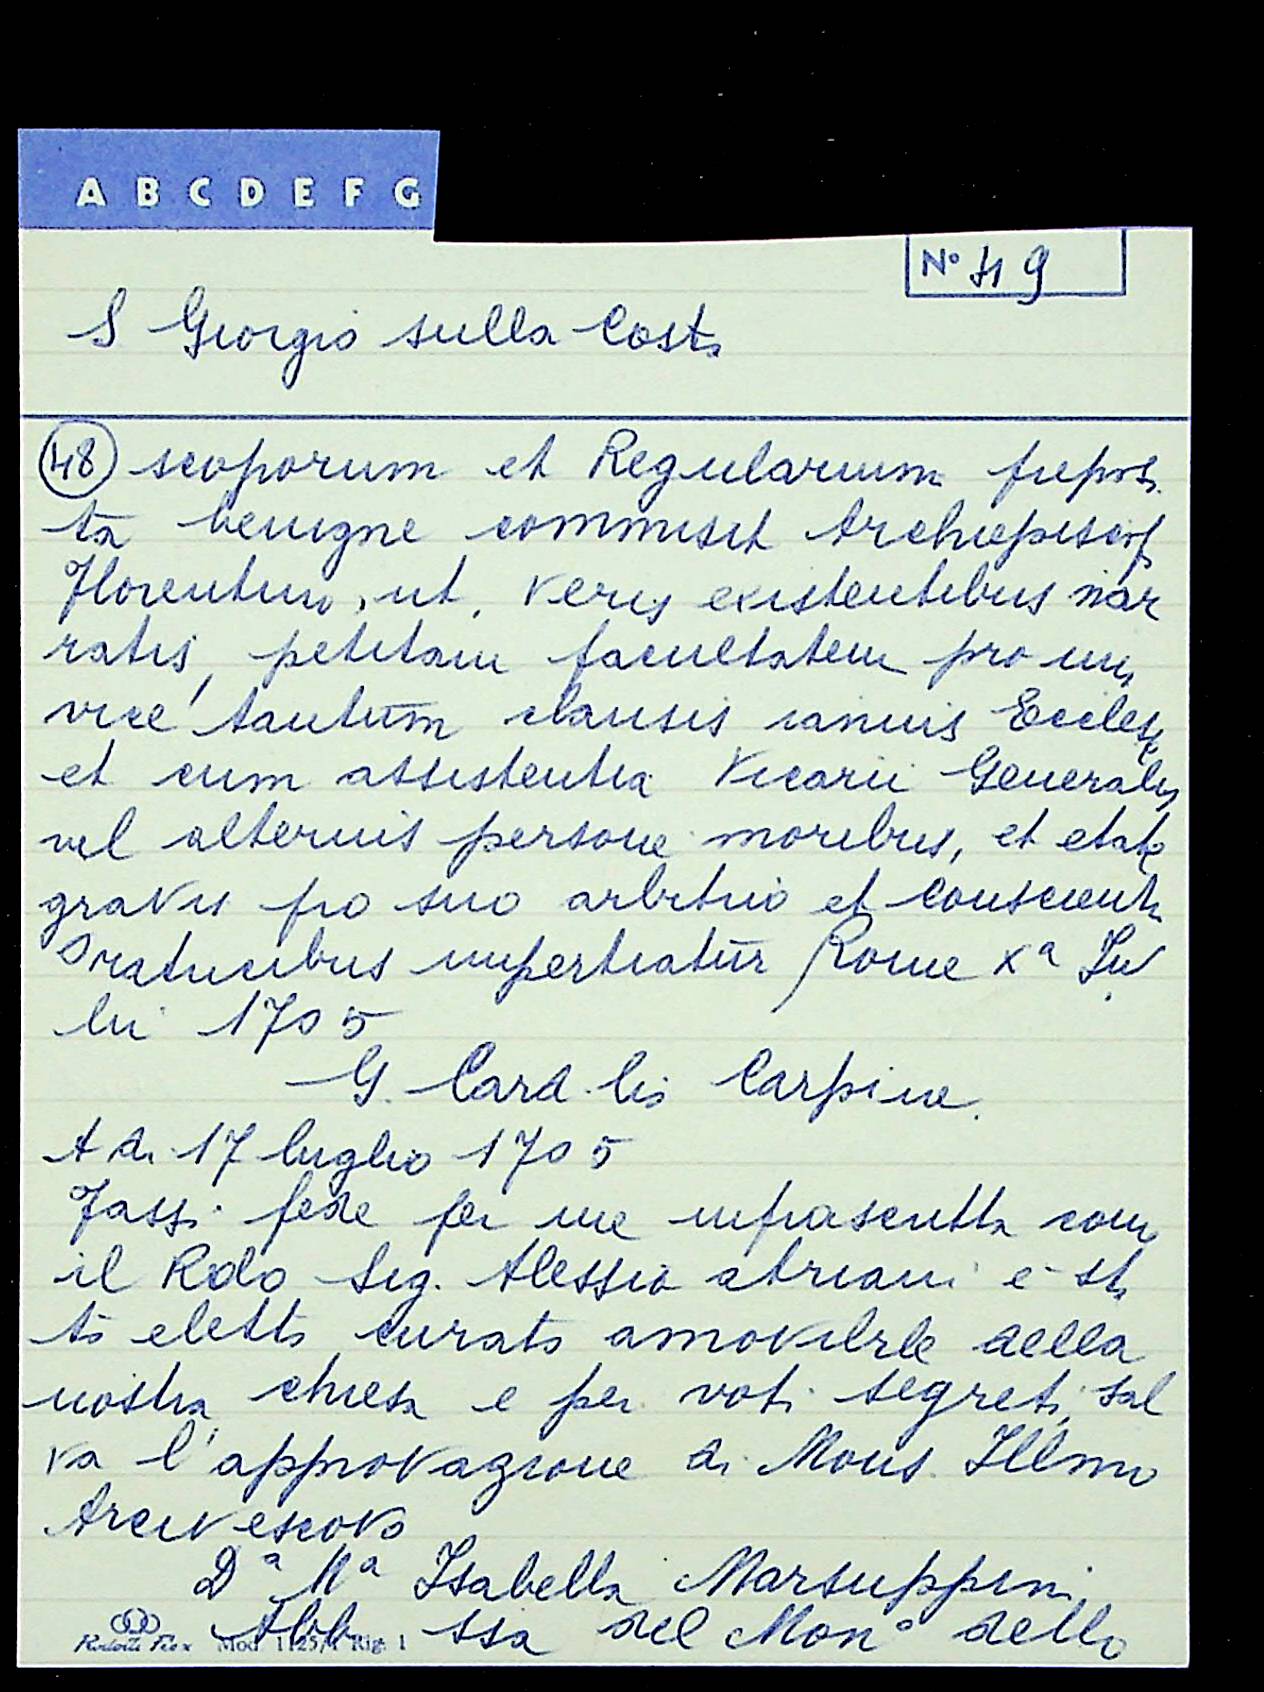 A B C D E F G
N° 49
S Giorgio sulla Costa
48 scoporum et Regularium preposi
ta benigne commisit Archiepiscop
Florentino, ut, veris existentibus nar
ratis, petitam facultatem pro una
vice tantum clausis ianuis Ecclesie
et cum assistentia Vicarii Generalis
vel alterius persone moribus, et etate
gravis pro suo arbitrio et conscientia
Oratricibus impertiatur Rome Xª Iu
lii 1705
G. Card. lis Carpine.
A di 17 luglio 1705
Fassi fede per me infrascritta come
il Rdo Sig. Alessio Abriani è sta
to eletto curato amovibile della
nostra chiesa e per voti segreti, sal
va l'approvazione di Mons. Illmo
Arcivescovo
Dª Mª Isabella Marsuppini
Abb ssa del Mon° dello
Mod. 1125/ Rig. 1